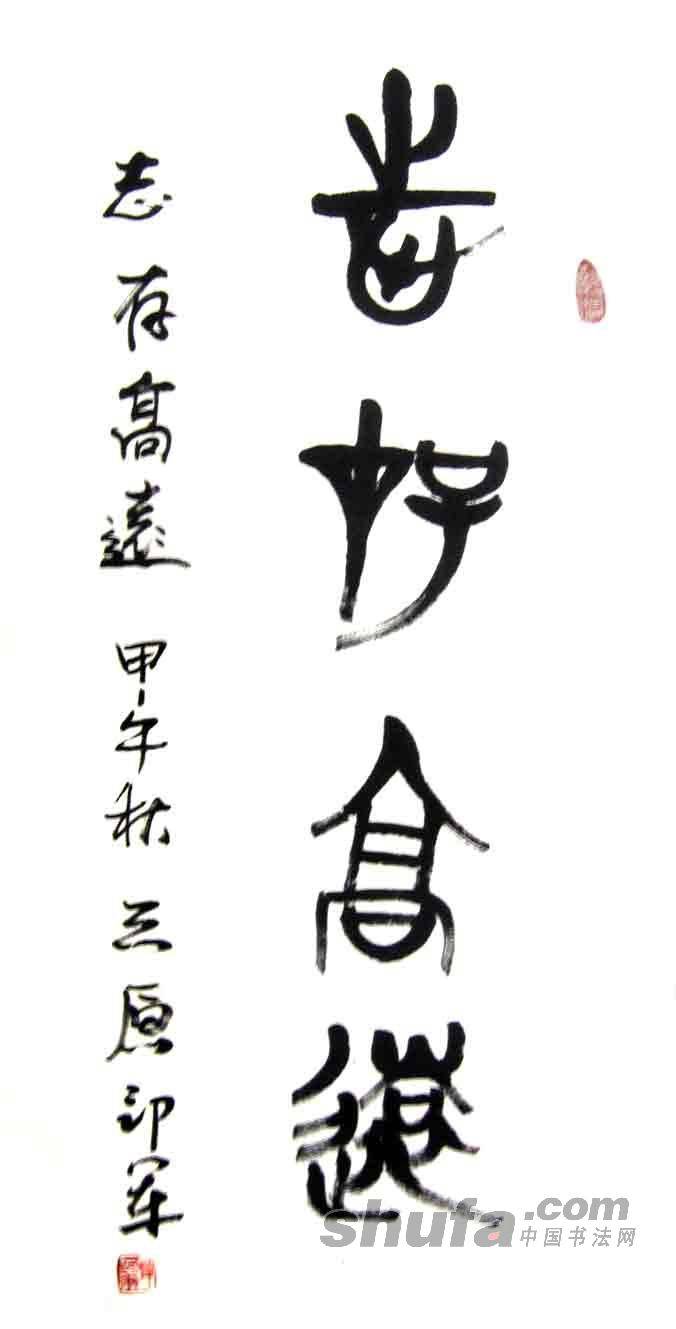 志存高遠
志存高遠 甲午秋 三原印军
shufa.com
中国书法网